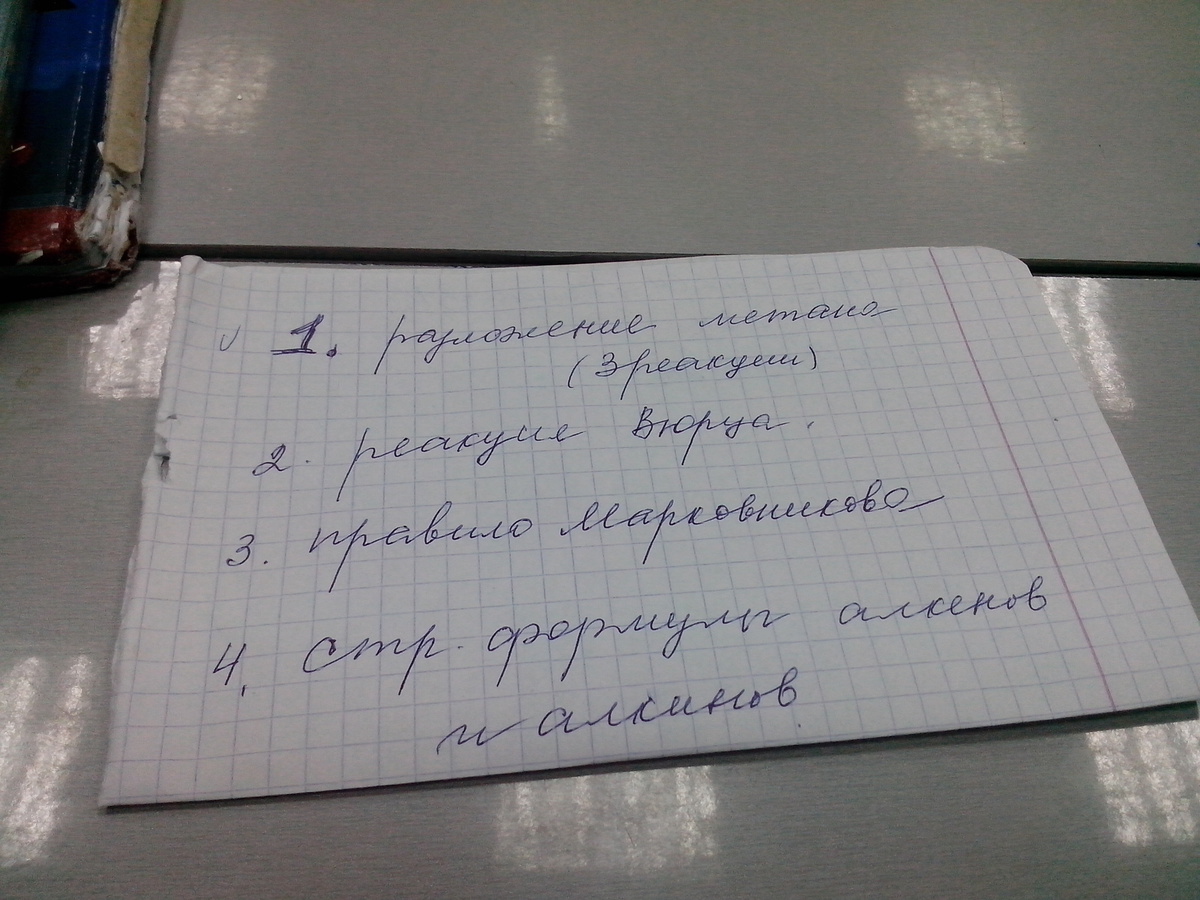 √ 1. разложение метана
(3 реакции)
2. реакция Вюрца.
3. правило Марковникова
4. стр. формулы алкенов
и алкинов